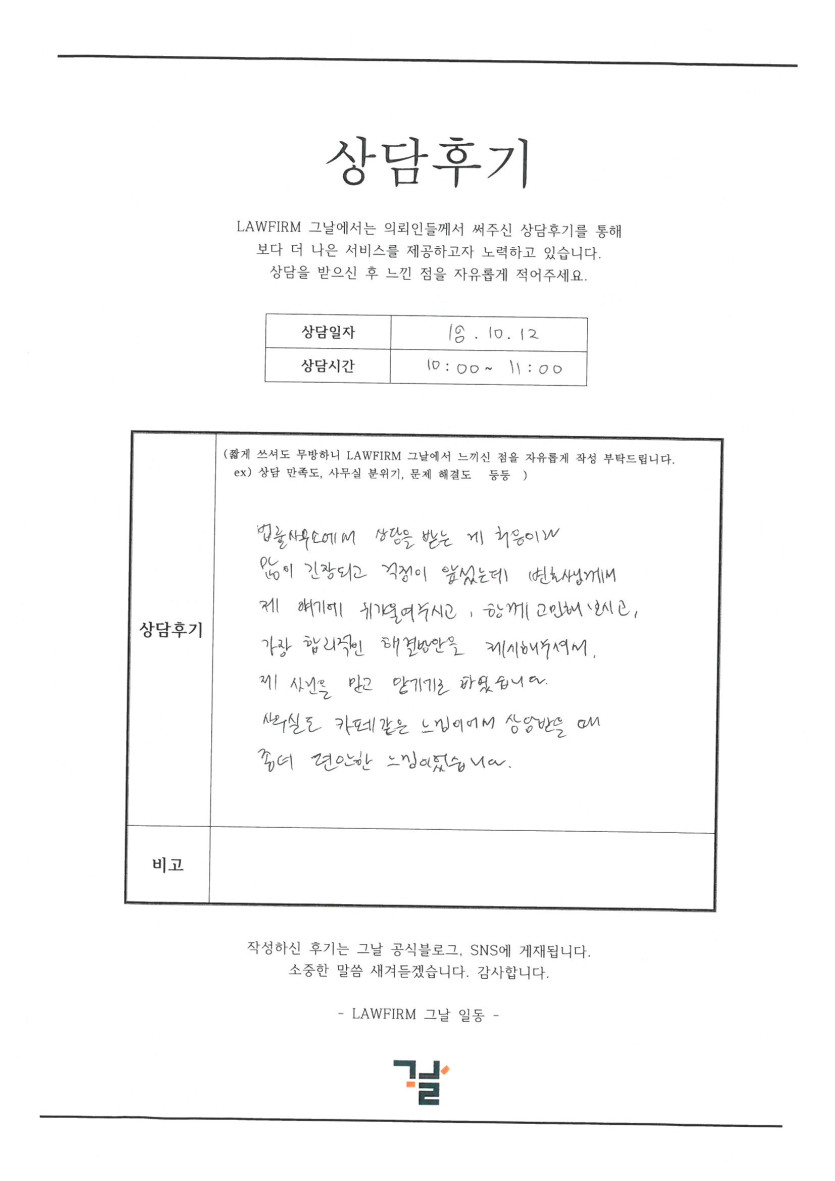 상담후기
LAWFIRM 그날에서는 의뢰인들께서 써주신 상담후기를 통해
보다 더 나은 서비스를 제공하고자 노력하고 있습니다.
상담을 받으신 후 느낀 점을 자유롭게 적어주세요.
상담일자 18. 10. 12
상담시간 10:00 ~ 11:00
(짧게 쓰셔도 무방하니 LAWFIRM 그날에서 느끼신 점을 자유롭게 작성 부탁드립니다.
ex) 상담 만족도, 사무실 분위기, 문제 해결도 등등 )
법률사무소에서 상담을 받는 게 처음이라
많이 긴장되고 걱정이 앞섰는데 변호사님께서
제 얘기에 귀기울여주시고, 함께 고민해 보시고,
상담후기
가장 합리적인 해결방안을 제시해주셔서,
제 사건을 믿고 맡기기로 하였습니다.
사무실도 카페같은 느낌이어서 상담받을 때
좀더 편안한 느낌이었습니다.
비고
작성하신 후기는 그날 공식블로그, SNS에 게재됩니다.
소중한 말씀 새겨듣겠습니다. 감사합니다.
- LAWFIRM 그날 일동 -
그날